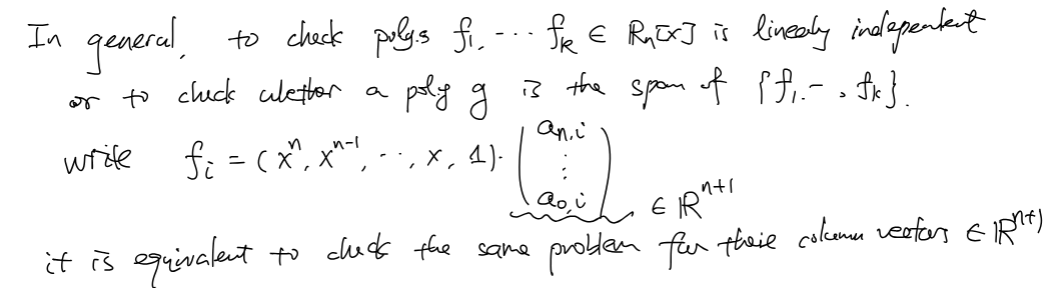 In general, to check polys f₁, ⋯ fₖ ∈ ℝₙ[x] is linearly independent
or to check whether a poly g is the span of {f₁, ⋯, fₖ}.
write fᵢ = (xⁿ, xⁿ⁻¹, ⋯, x, 1)· (aₙ,ᵢ ⋮ a₀,ᵢ) ∈ ℝⁿ⁺¹
it is equivalent to check the same problem for their column vectors ∈ ℝⁿ⁺¹